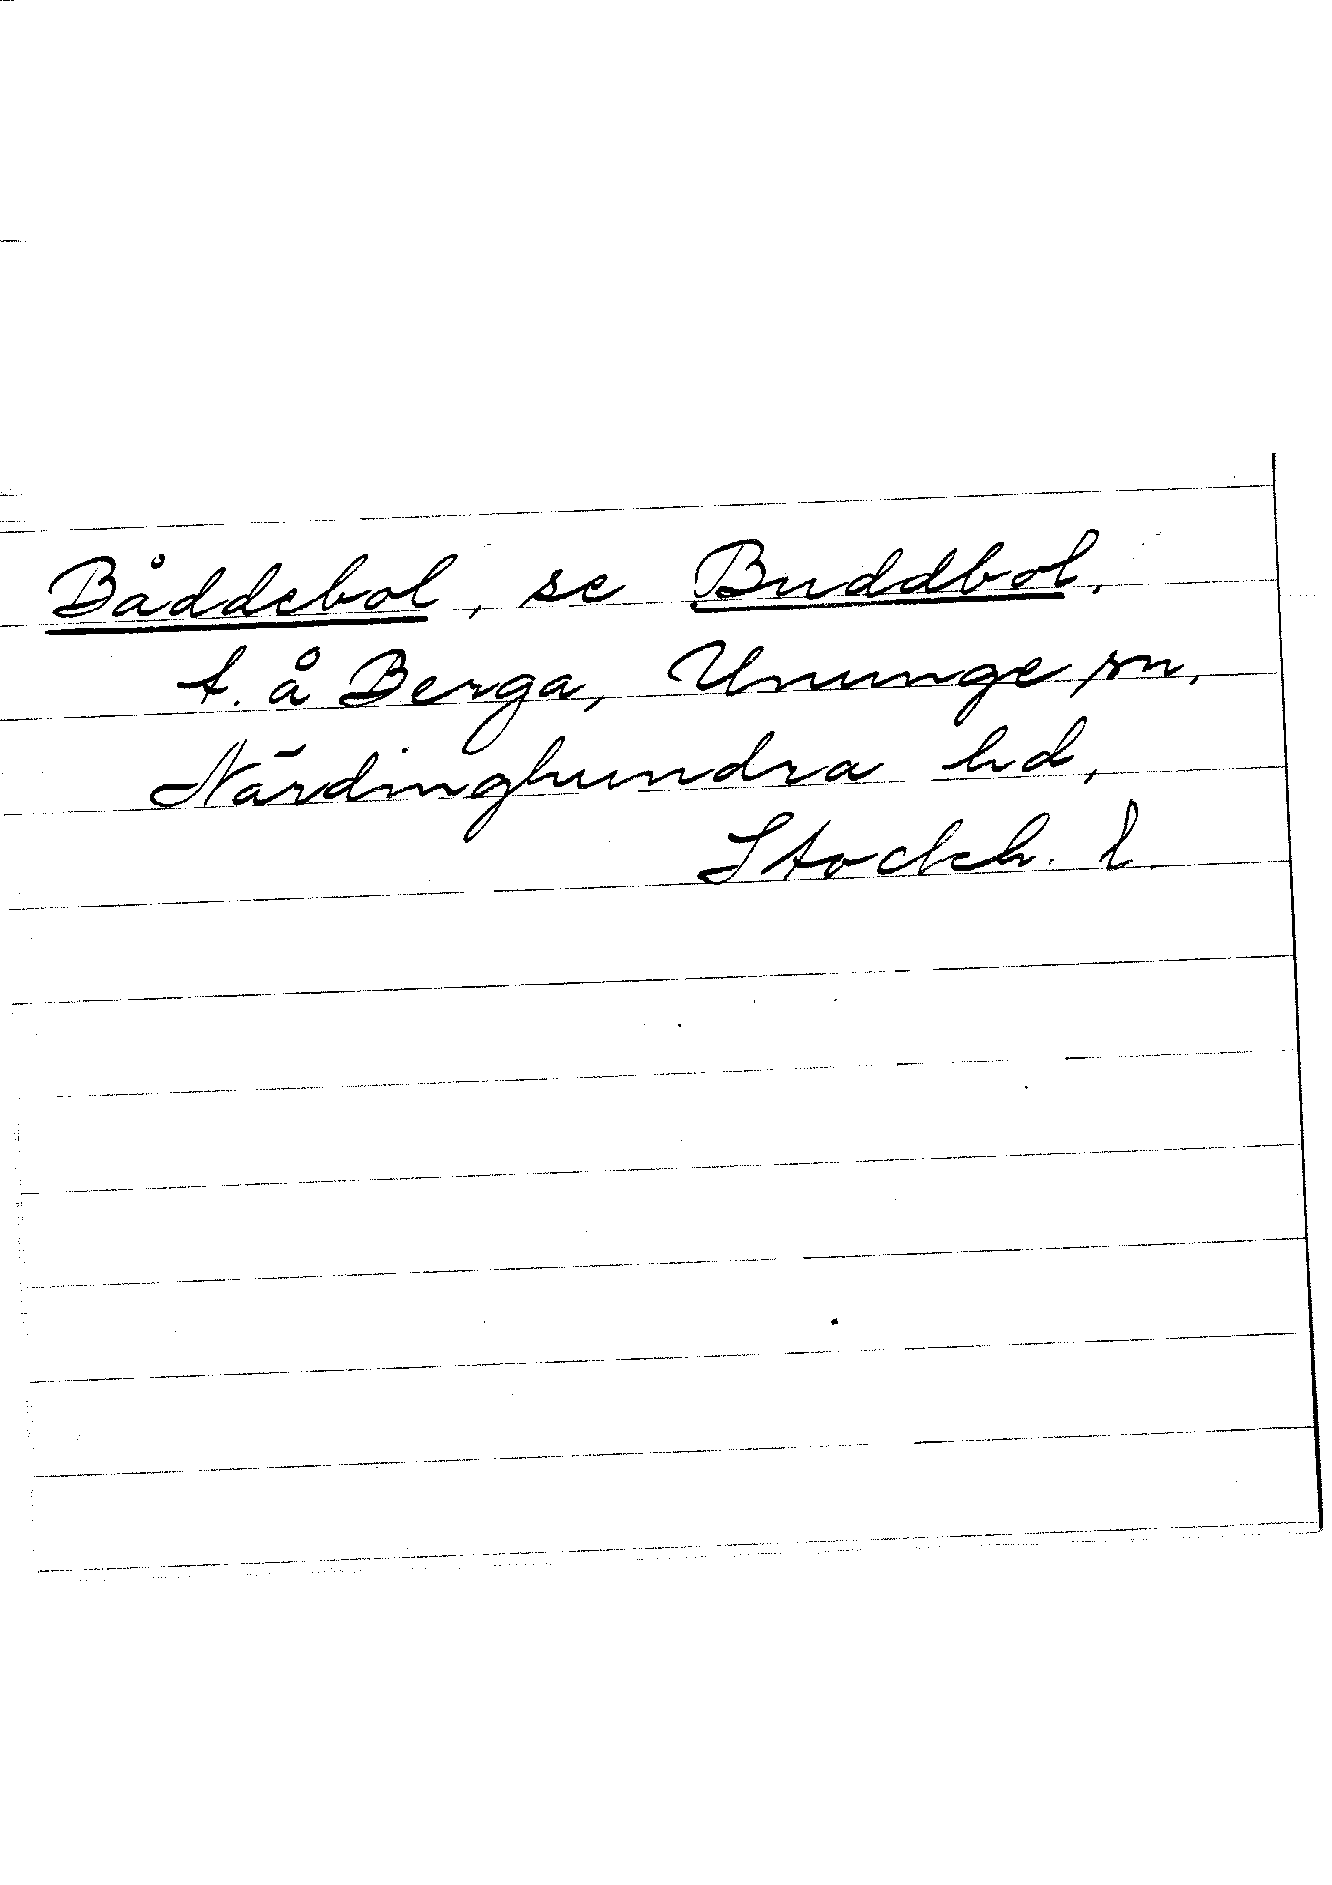 Båddebol, se Buddbol,
t. å Berga, Ununge sn,
Närdinghundra hd,
Stockh. l.